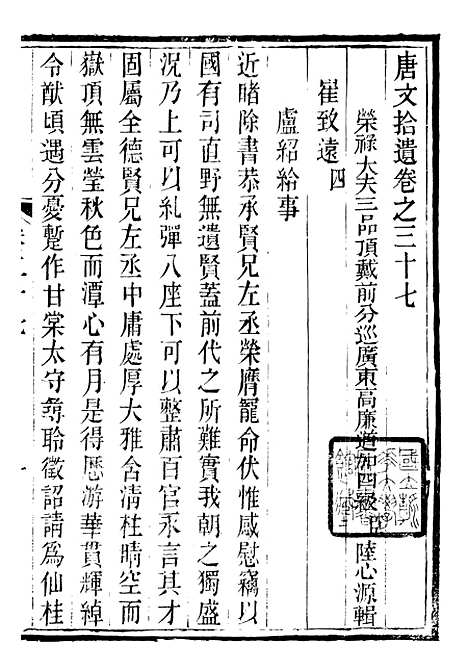 唐文拾遺卷之三十七
榮祿大夫三品頂戴前分巡廣東高廉道加四級臣陸心源輯
崔致遠四
盧紹給事
近睹除書恭承賢兄左丞榮膺寵命伏惟感慰竊以
國有司直野無遺賢蓋前代之所難實我朝之獨盛
況乃上可以糺彈八座下可以整肅百官永言其才
固屬全德賢兄左丞中庸處厚大雅含清柱晴空而
嶽頂無雲瑩秋色而潭心有月是得歷游華貫輝綽
令猷頃遇分憂蹔作甘棠太守尋聆徵詔請爲仙桂